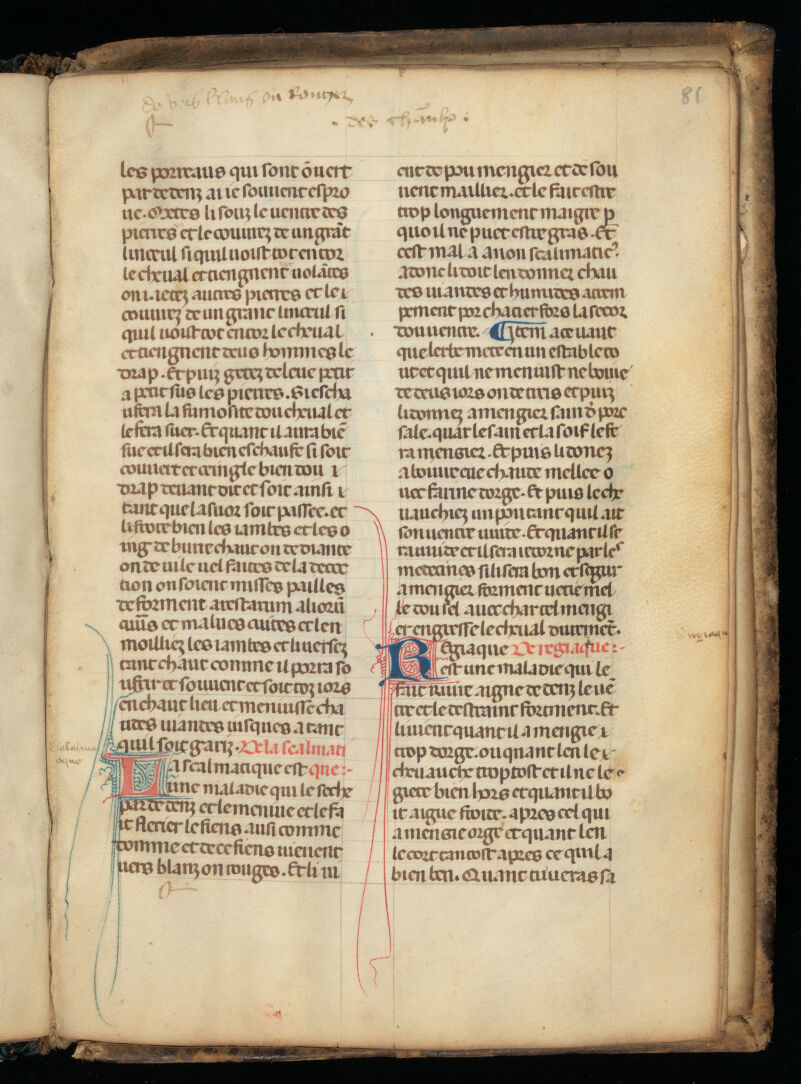 de vers blans ou Rouges
81
les porteaus qui sont ouert
par dedenz ai ie souuent espro
ue. Metes li souz le uentre des
pierres et le couurez de un grãt
linceul si quil uoist tot entor
le cheual et tiengnent uolãtes
on .i. ietez autres pierres et le i
couurez de un grant linceul si
quil uoist tot entor le cheual
et tiengnent deus hommes le
drap. Et puiz getez de leue petit
a petit sus les pierres. Si escha
ufera la fumosite dou cheual et
le fera suer. Et quant il aura biẽ
sue et il sera bien eschaufe si soit
couuert et cengle bien dou i
drap deuant dit et soit ainsi i
tant que la suor soit passee. et
li frote bien les iambes et les o
ing de burre chaut ou de diante
on de uile uel faites de la decoc
tion ou soient misses pailles
de forment arestarum aliorũ
quiis et malues cuites et len
moilliez les iambes et li uersez
tant chaut comme il porra so
ufrir et souuent et soit toz iors
en chaut lieu et meniuisse cha
udes uiandes iusques a tant
quil soit gariz. De la scalmati
La scalmatique est que:-
une maladie qui le seche
par dedenz et le meniue et le fa
it flerier le fiens ausi comme
domme et de ce fiens uienent
uers blanz ou rouges. Et li ui
ent de pou mengier et de sou
uent maillier. et le fait estre
trop longuement maigre p
quo il ne puet estre gras. Et
cest mal a a non scalmatic9.
Adone li doit len donner chau
des uiandes et humides atem
pement por chacier fors la secor
dou uentre. Item a ce uaut
que len le mete en un estable to
ut et quil ne meniuist ne boiue
de deus iors ou de treis et puiz
li donnez a mengier sain d porc
sale. quar le sain et la soif le fe
ra mengier. Et puis li donez
a boiure eue chaude mellee o
uec farine dorge. Et puis le che
uauchiez un pou tant quil ait
son uentre uuide. Et quant il se
ra uuide et il sera itorne par les
medecines si li sera bon et segur
a mengier forment uetie mel
le dou sel auec char tel mengi
er engresse le cheual durement.
Regiaque De regiaque:-
est une maladie qui le
fait ruiut aigne dedenz le uẽ
tre et le destraint forment. Et
li uient quant il a mengie i
trop dorge. ou quant len le i-
cheuauche trop tost et il ne le
giete bien hors et quant il bo
it aigue froide. apres cel qui
a mengie orge et quant len
le cort tantost apres ce quil a
bien beu. Quant tu uerras sa